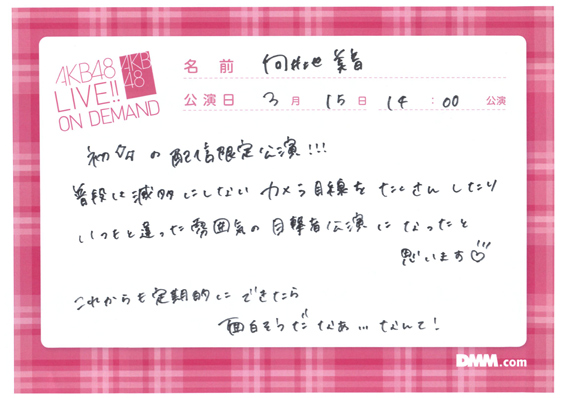 AKB48
LIVE!!
ON DEMAND
AKB
48
名前 向井地 美音
公演日 3月 15日 14:00 公演
初めての配信限定公演!!!
普段は滅多にしないカメラ目線をたくさんしたり
いつもと違った雰囲気の目撃者公演になったと
思います♡
これからも定期的にできたら
面白そうだなぁ…なんて!
DMM.com